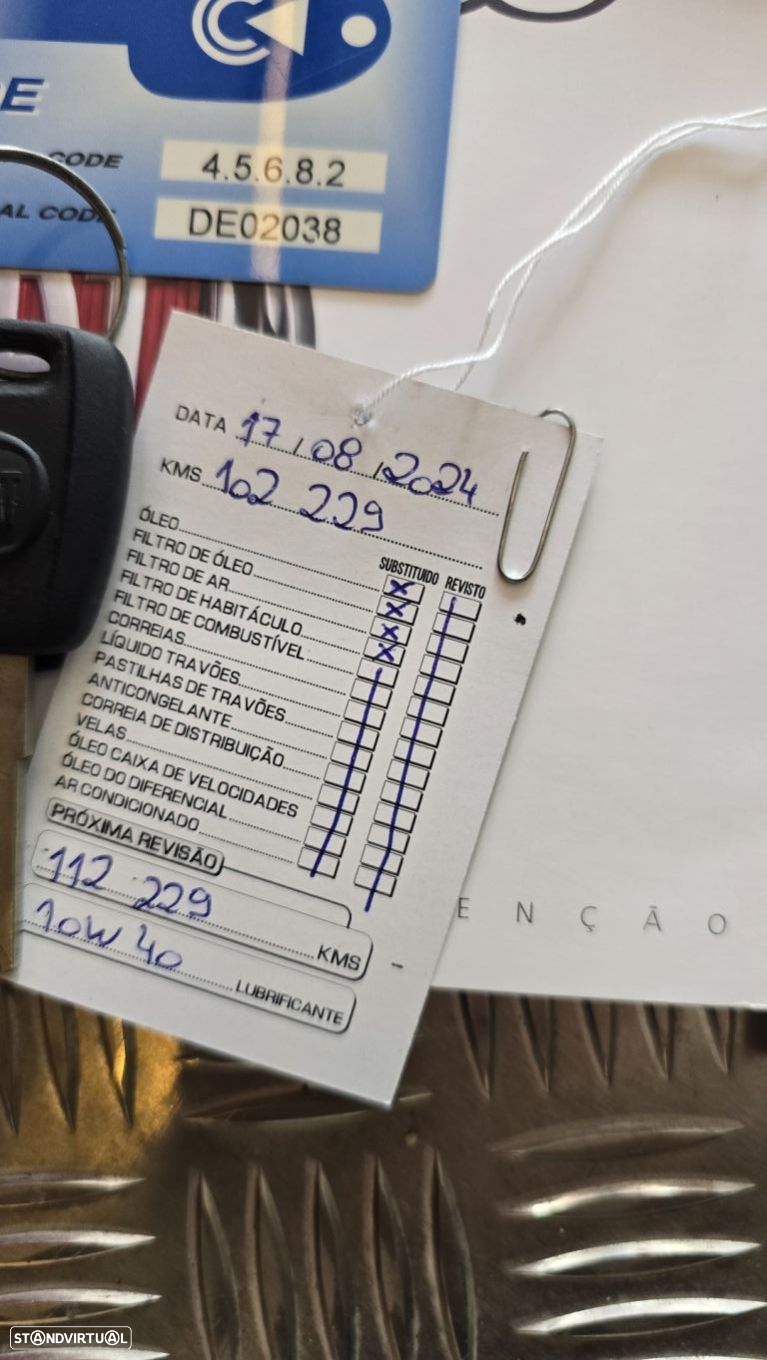 E
CODE
4.5.6.8.2
AL CODE
DE02038
DATA 17 / 08 / 2024
KMS 102 229
SUBSTITUIDO REVISTO
ÓLEO
FILTRO DE ÓLEO
FILTRO DE AR
FILTRO DE HABITÁCULO
FILTRO DE COMBUSTÍVEL
CORREIAS
LÍQUIDO TRAVÕES
PASTILHAS DE TRAVÕES
ANTICONGELANTE
CORREIA DE DISTRIBUIÇÃO
VELAS
ÓLEO CAIXA DE VELOCIDADES
ÓLEO DO DIFERENCIAL
AR CONDICIONADO
PRÓXIMA REVISÃO
112 229 KMS
10W 40 LUBRIFICANTE
ENÇÃO
STANDVIRTUAL